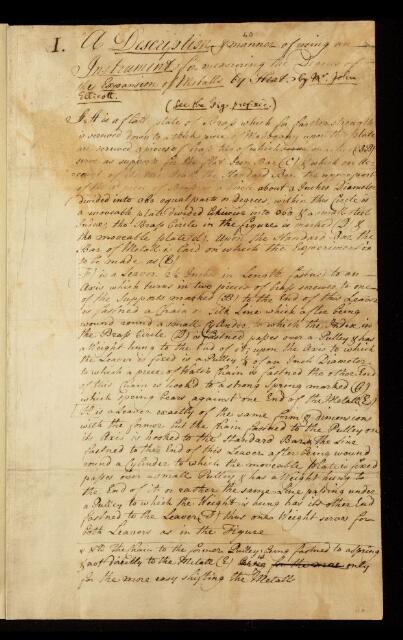 40
I. A Description & manner of using an
Instrument for measuring the Degrees of
the Expansion of Metalls by Heat. by Mr. John
Ellicott.
(See the Fig. prefixed.)
A. is a flat plate of Brass which for further strength
is screwed down to a thick piece of Mahogany upon this Plate
are screwed 3 pieces of brass two of which (BB)
serve as supports for the flat Iron Bar (C) & which on Ac-
count of its use I call the Standard Bar the upper part
of the 3d piece of Brass is a Circle about 3 Inches Diameter
divided into 360 equal parts or Degrees, within this Circle is
a moveable plate divided likewise into 360 & a small steel
Index; the Brass Circle in the figure is marked D &
the moveable plate (d). Upon the Standard Bar the
Bar of Metal E is laid on which the Experiment is
to be made as (E)
F is a Leaver 2½ Inches in Length fastned to an
Axis which turns in two pieces of brass screwed to one
of the Supports marked (B) to the End of this Leaver
is fastned a Chain or Silk Line which after being
wound round a small Cylinder to which the Index in
the Brass Circle (D) is fastned passes over a Pulley & has
a Weight hung to the End of it, upon the Axis to which
the Leaver is fixed is a Pulley ¼ of an Inch Diameter
to which a piece of Watch Chain is fastned the other End
of this Chain is hooked to a strong Spring marked (G)
which spring bears against one End of the Metall E.)
H is a Leaver exactly of the same form & dimensions
with the former but the Chain fastned to the Pulley on
its Axis is hooked to the Standard Bar & the Line
fastned to the End of this Leaver after being wound
round a Cylinder to which the moveable Plate is fixed
passes over a small Pulley & has a Weight hung to
the End of it or rather the same Line passing under
a Pulley to which the Weight is hung has its other End
fastned to the Leaver (F) thus one Weight serves for
both Leavers as in the Figure
The Chain to the former Pulley being fastned to a Spring
& not directly to the Metall (E) is for the more only
for the more easy shifting the Metall